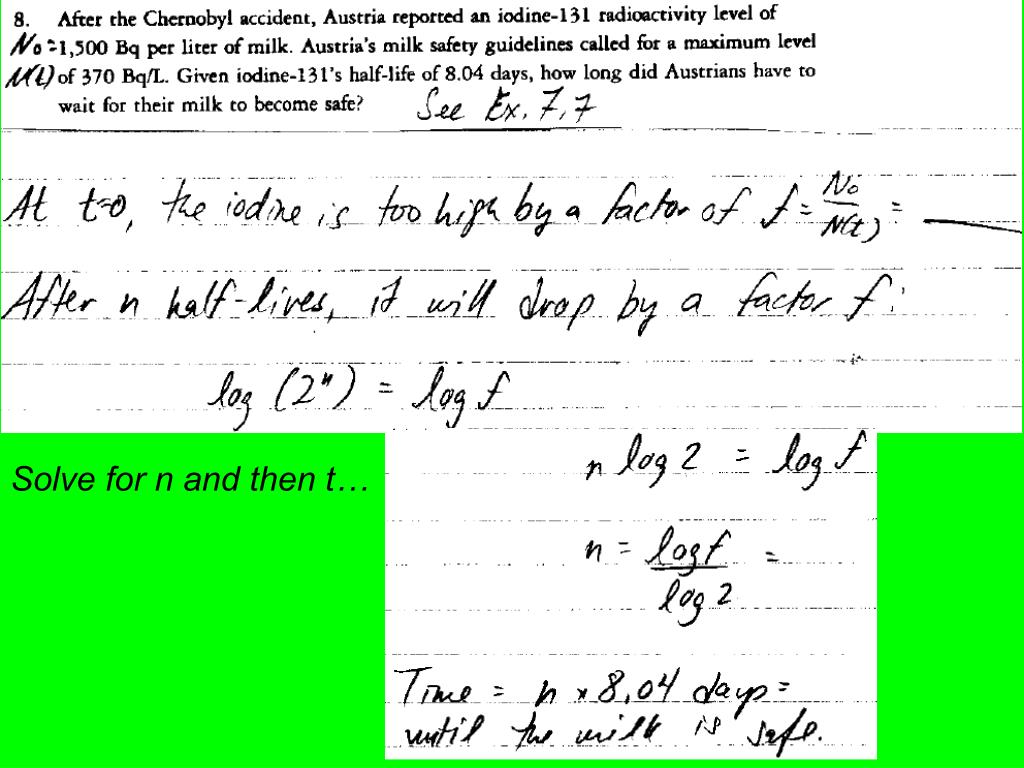 8. After the Chernobyl accident, Austria reported an iodine-131 radioactivity level of
N₀ = 1,500 Bq per liter of milk. Austria's milk safety guidelines called for a maximum level
N(t) of 370 Bq/L. Given iodine-131's half-life of 8.04 days, how long did Austrians have to
wait for their milk to become safe? See Ex. 7.7
At t=0, the iodine is too high by a factor of f = N₀/N(t) = ____
After n half-lives, it will drop by a factor f:
log (2ⁿ) = log f
n log 2 = log f
Solve for n and then t…
n = log f / log 2 =
Time = n × 8.04 days =
until the milk is safe.